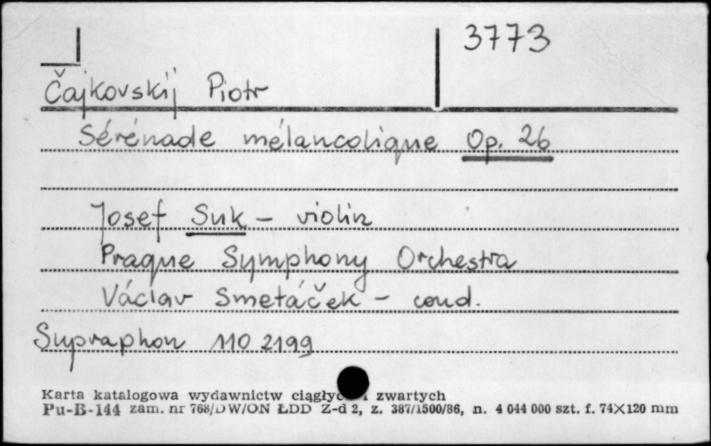 3773
Čajkovskij Piotr
Sérénade mélancolique Op. 26
Josef Suk - violin
Prague Symphony Orchestra
Václav Smetáček - cond.
Supraphon 110 2199
Karta katalogowa wydawnictw zwartych
Pu-B-144 zam. nr 768/DW/ON ŁDD Z-d 2, z. 387/1500/86, n. 4 044 000 szt. f. 74×120 mm